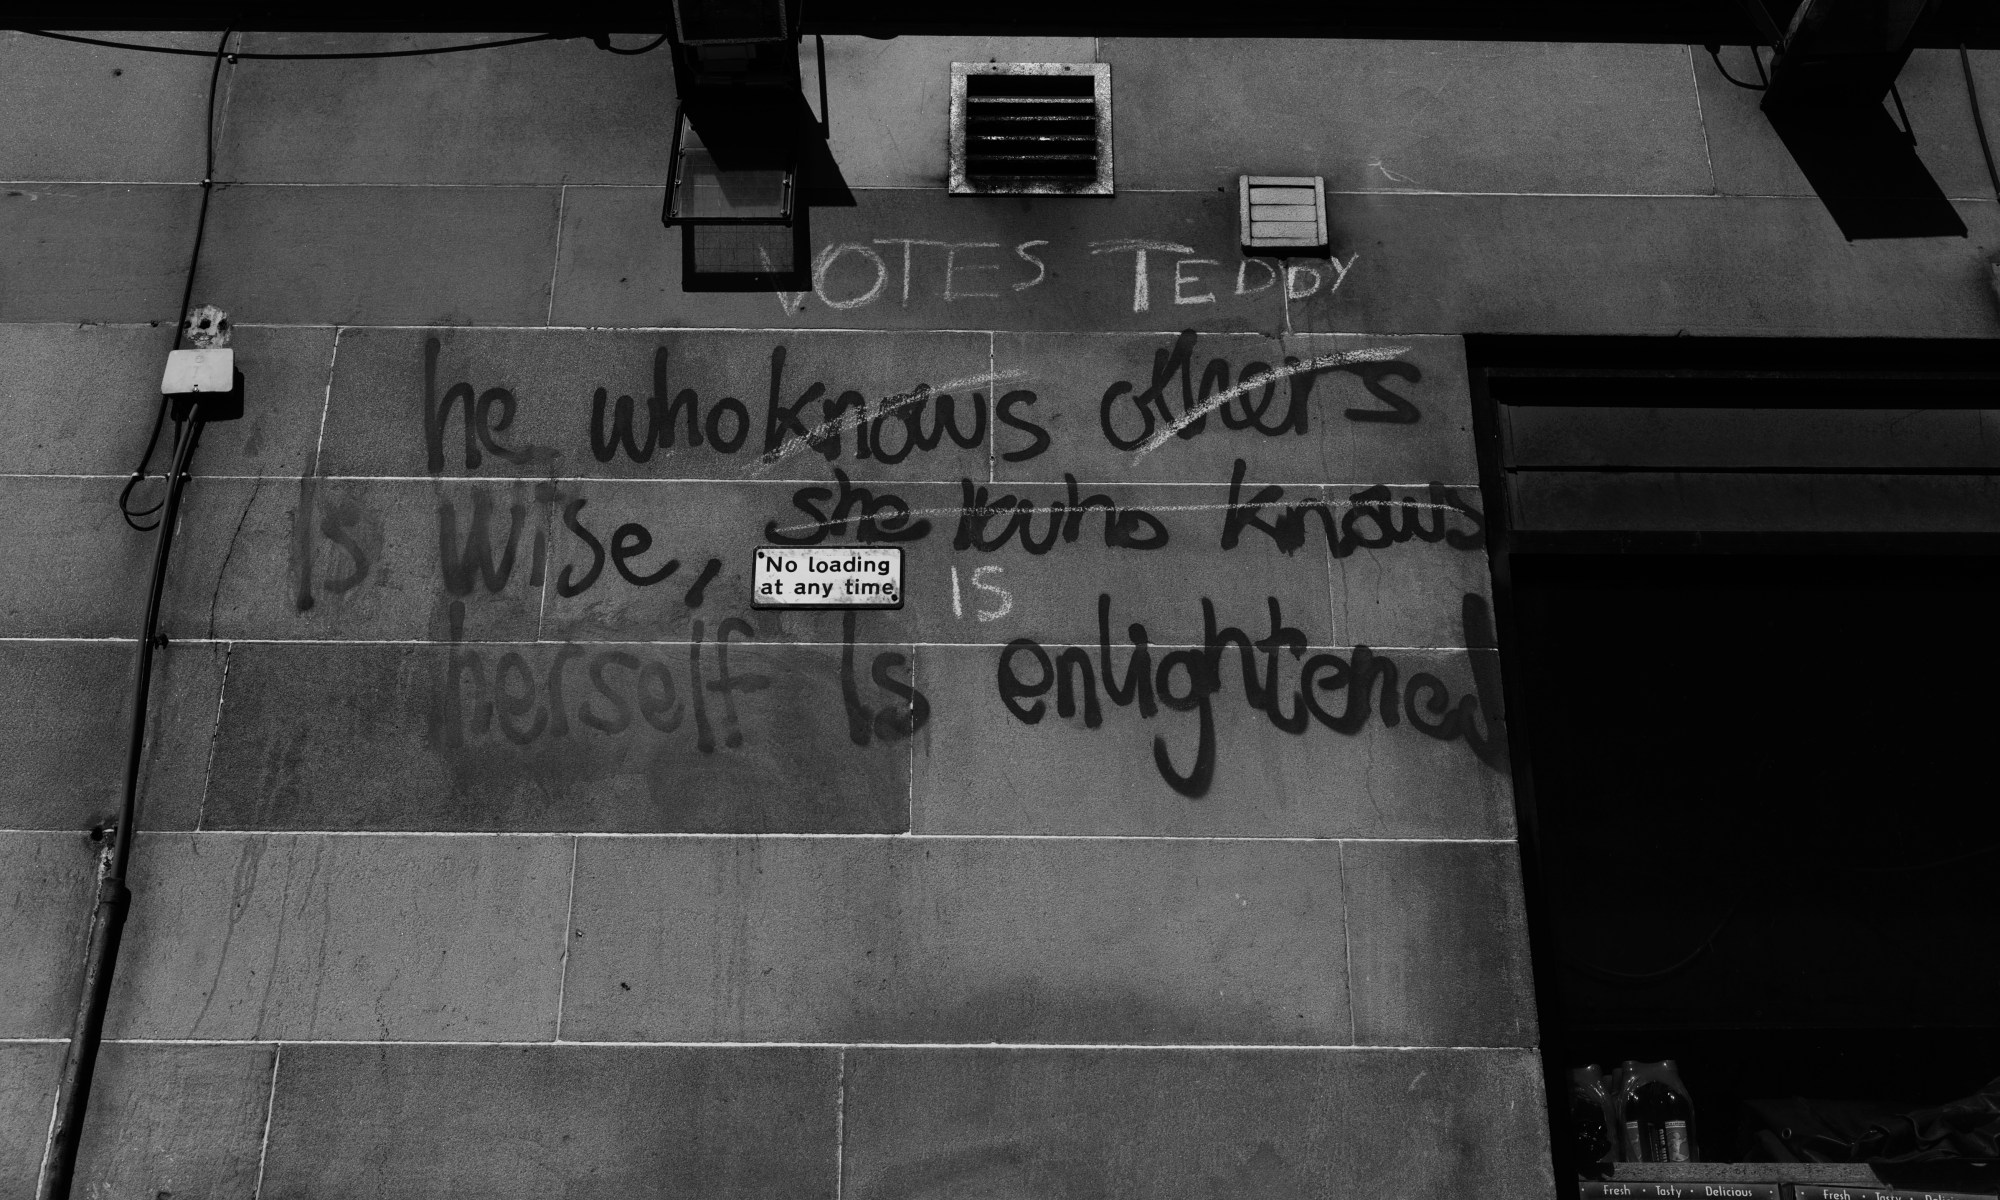 VOTES TEDDY
he who knows others
Is wise, she who knows
No loading
at any time
IS
herself Is enlightened
Fresh · Tasty · Delicious
Fresh · Tasty